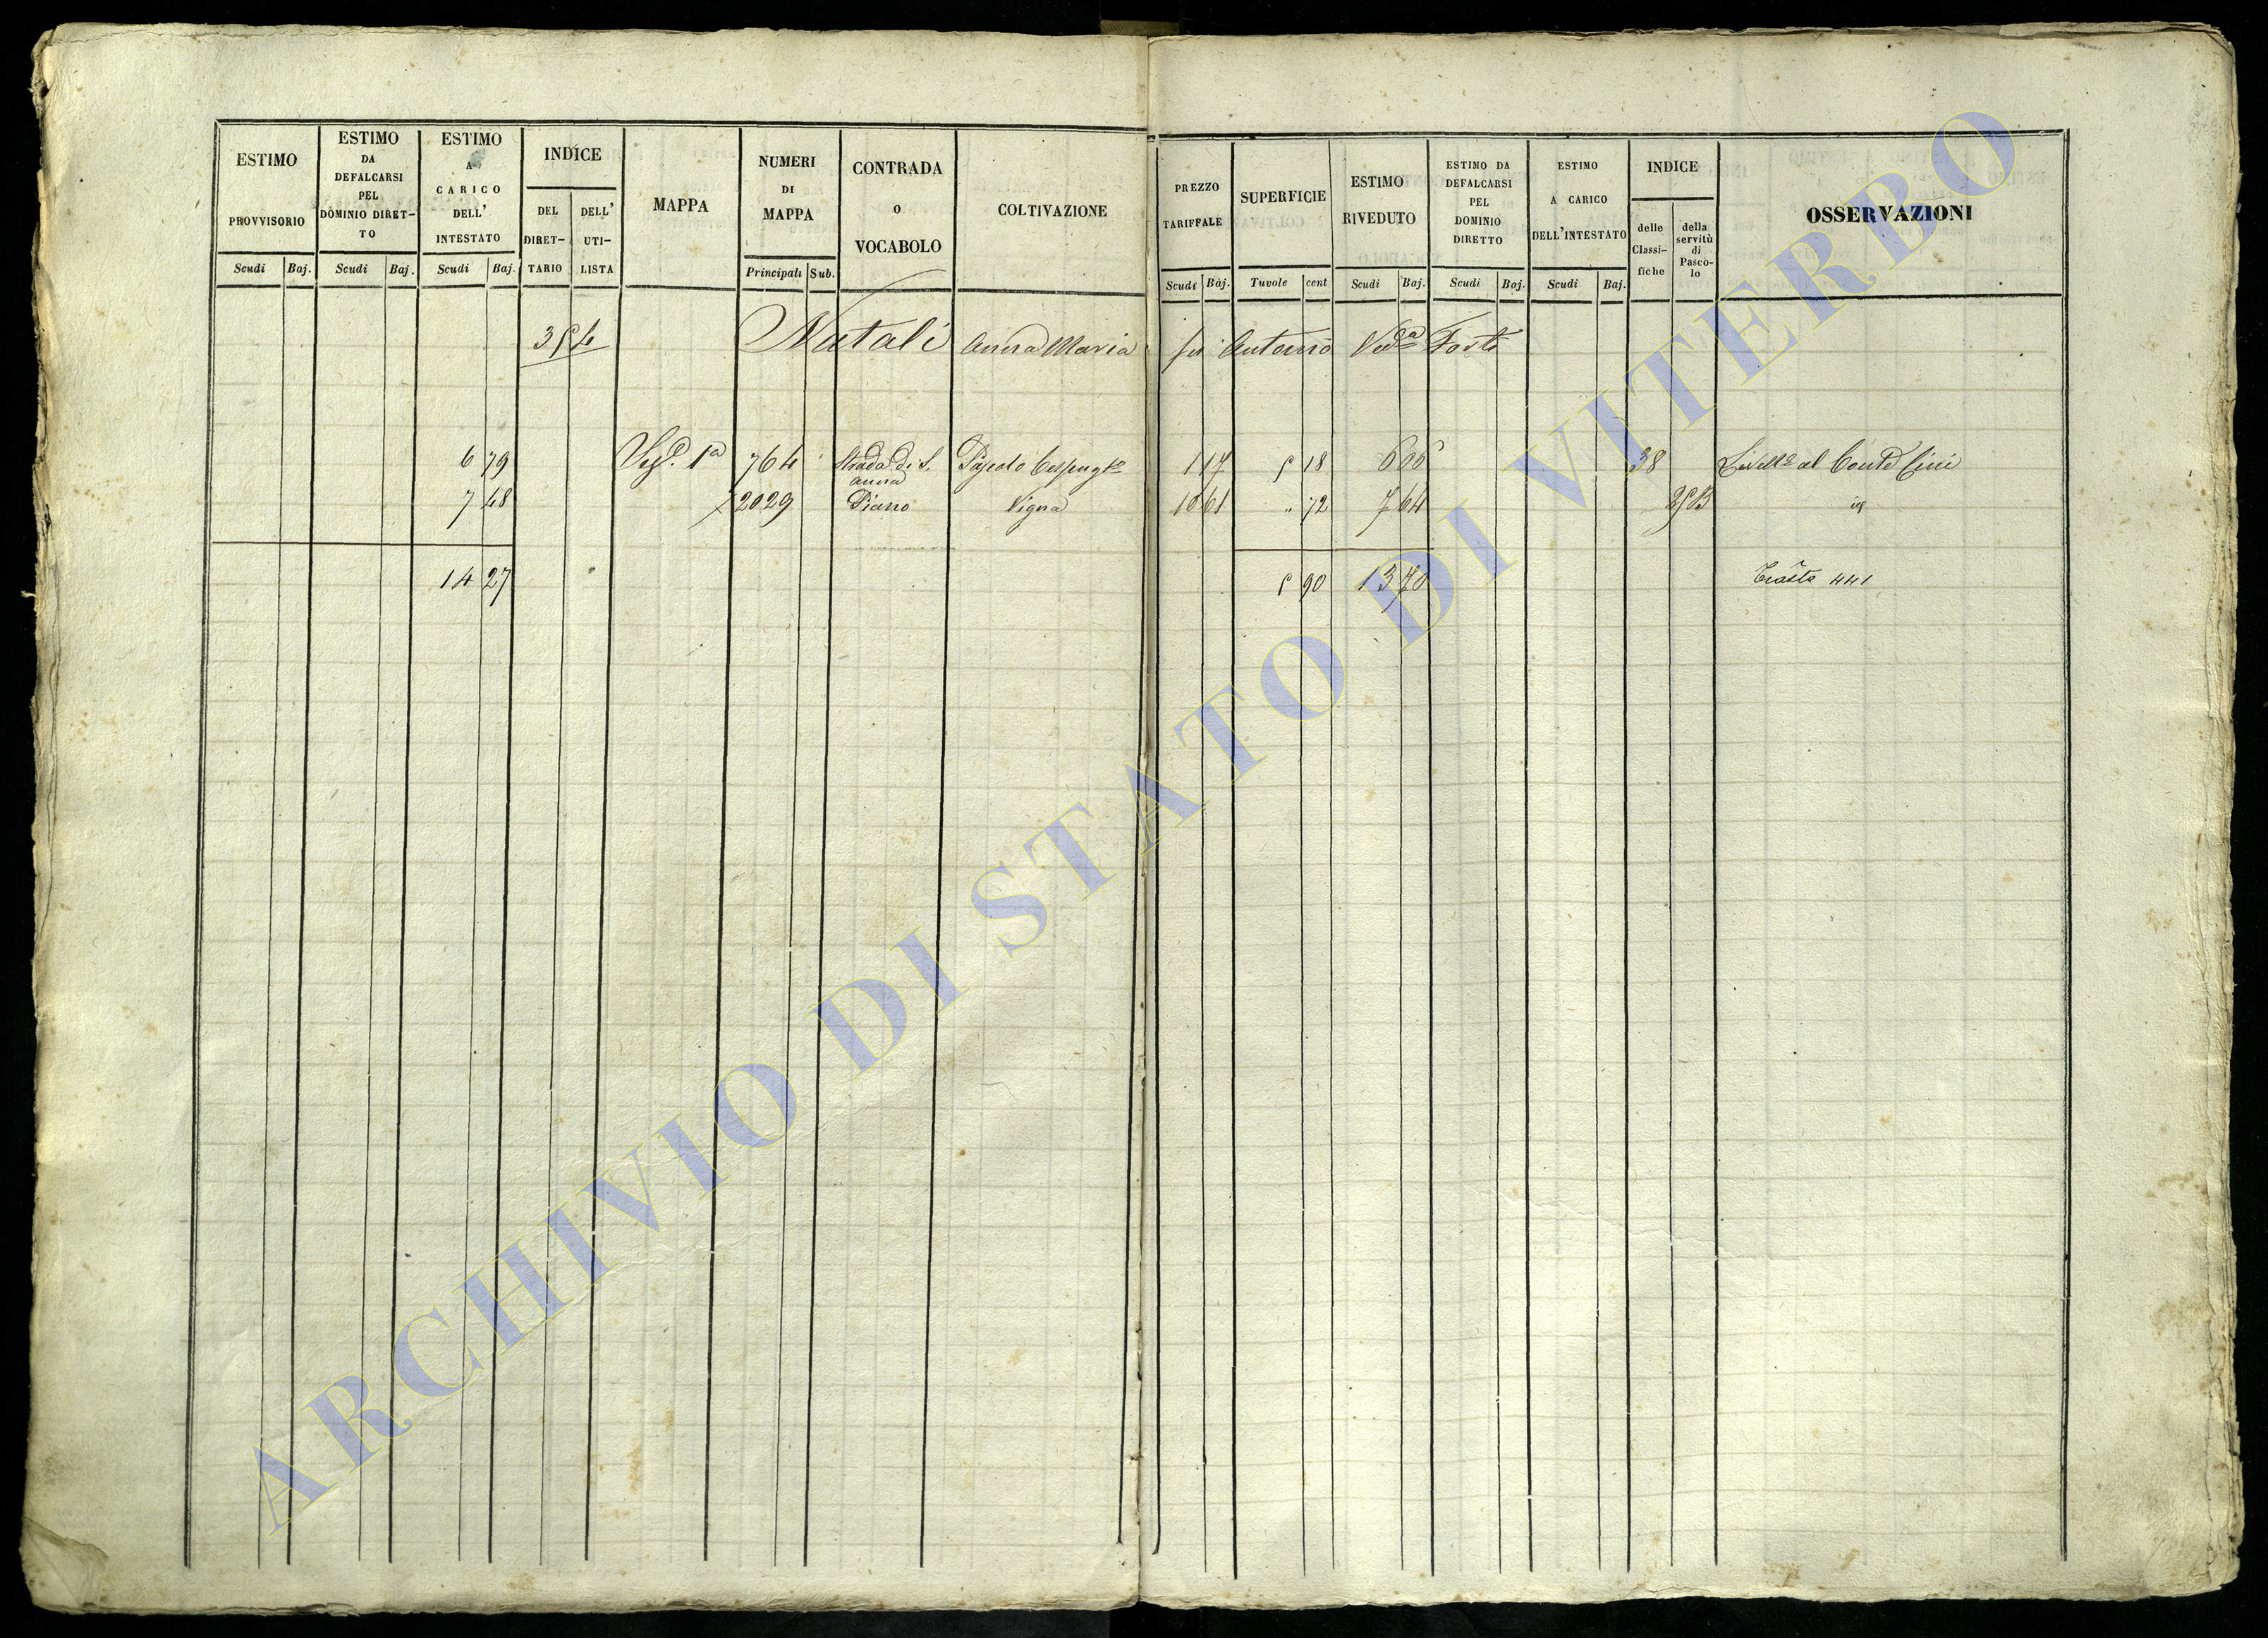 ESTIMO PROVVISORIO
ESTIMO DA DEFALCARSI PEL DOMINIO DIRET-TO
ESTIMO A CARICO DELL' INTESTATO
INDICE
DEL DIRET-TARIO
DELL' UTI-LISTA
MAPPA
NUMERI DI MAPPA
CONTRADA O VOCABOLO
COLTIVAZIONE
PREZZO TARIFFALE
SUPERFICIE
ESTIMO RIVEDUTO
ESTIMO DA DEFALCARSI PEL DOMINIO DIRETTO
ESTIMO A CARICO DELL'INTESTATO
INDICE
delle Classi-fiche
della servitù di Pasco-lo
OSSERVAZIONI
Scudi Baj. Scudi Baj. Scudi Baj. Principali Sub. Scudi Baj. Tavole cent Scudi Baj. Scudi Baj. Scudi Baj.
354 Natali Anna Maria fu Antonio Ved.a Forti
6 79 1a 764 Strada di S. Anna Pascolo 1 17 5 18 6 06 38 al Conte Cini
7 48 2029 Piano Vigna 10 61 " 72 7 64 id
14 27 5 90 13 70 441
ARCHIVIO DI STATO DI VITERBO